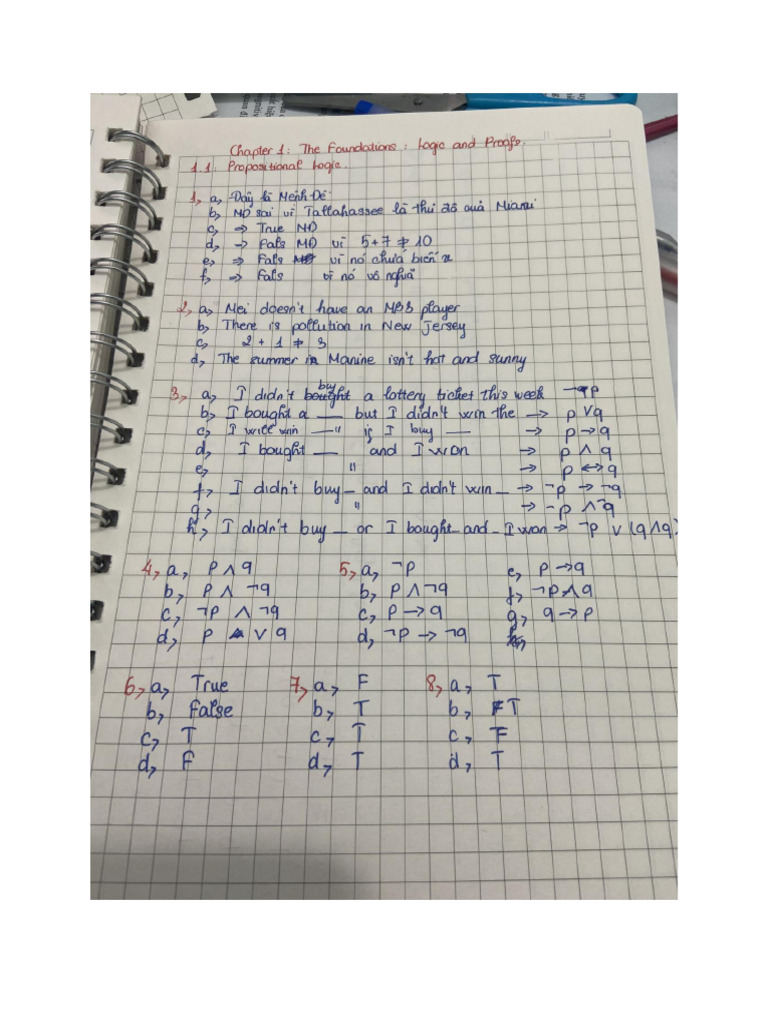 Chapter 1: The Foundations: Logic and Proofs.
1.1. Propositional Logic.
1, a, Đây là Mệnh Đề
b, MĐ sai vì Tallahassee là thủ đô của Miami
c, ⇒ True MĐ
d, → Fals MĐ vì 5+7 ≠ 10
e, ⇒ Fals vì nó chứa biến x
f, → Fals vì nó vô nghĩa
2, a, Mei doesn't have an MB3 player
b, There is pollution in New Jersey
c, 2 + 1 ≠ 3
d, The summer in Manine isn't hot and sunny
3, a, I didn't buy a lottery ticket this week ¬p
b, I bought a __ but I didn't win the → p ∨ q
c, I will win __ " if I buy __ → p → q
d, I bought __ and I won → p ∧ q
e, " → p ↔ q
f, I didn't buy _ and I didn't win _ → ¬p → ¬q
g, " → ¬p ∧ ¬q
h, I didn't buy _ or I bought _ and _ I won → ¬p ∨ (q ∧ q)
4, a, p ∧ q 5, a, ¬p e, p → q
b, p ∧ ¬q b, p ∧ ¬q f, ¬p ∧ q
c, ¬p ∧ ¬q c, p → q g, q → p
d, p ∨ q d, ¬p → ¬q
6, a, True 7, a, F 8, a, T
b, False b, T b, T
c, T c, T c, F
d, F d, T d, T